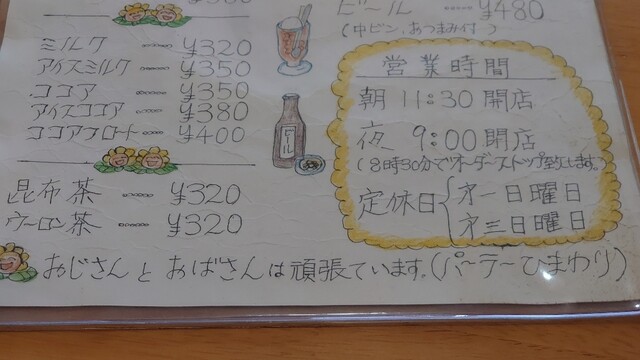 ミルク ¥320
アイスミルク ¥350
ココア ¥350
アイスココア ¥380
ココアフロート ¥400
昆布茶 ¥320
ウーロン茶 ¥320
ビール ¥480
(中ビン、おつまみ付)
ビール
営業時間
朝 11:30 開店
夜 9:00 閉店
(8時30分でオーダーストップ致します。)
定休日 才一日曜日
才三日曜日
おじさんとおばさんは頑張ています。(パーラーひまわり)